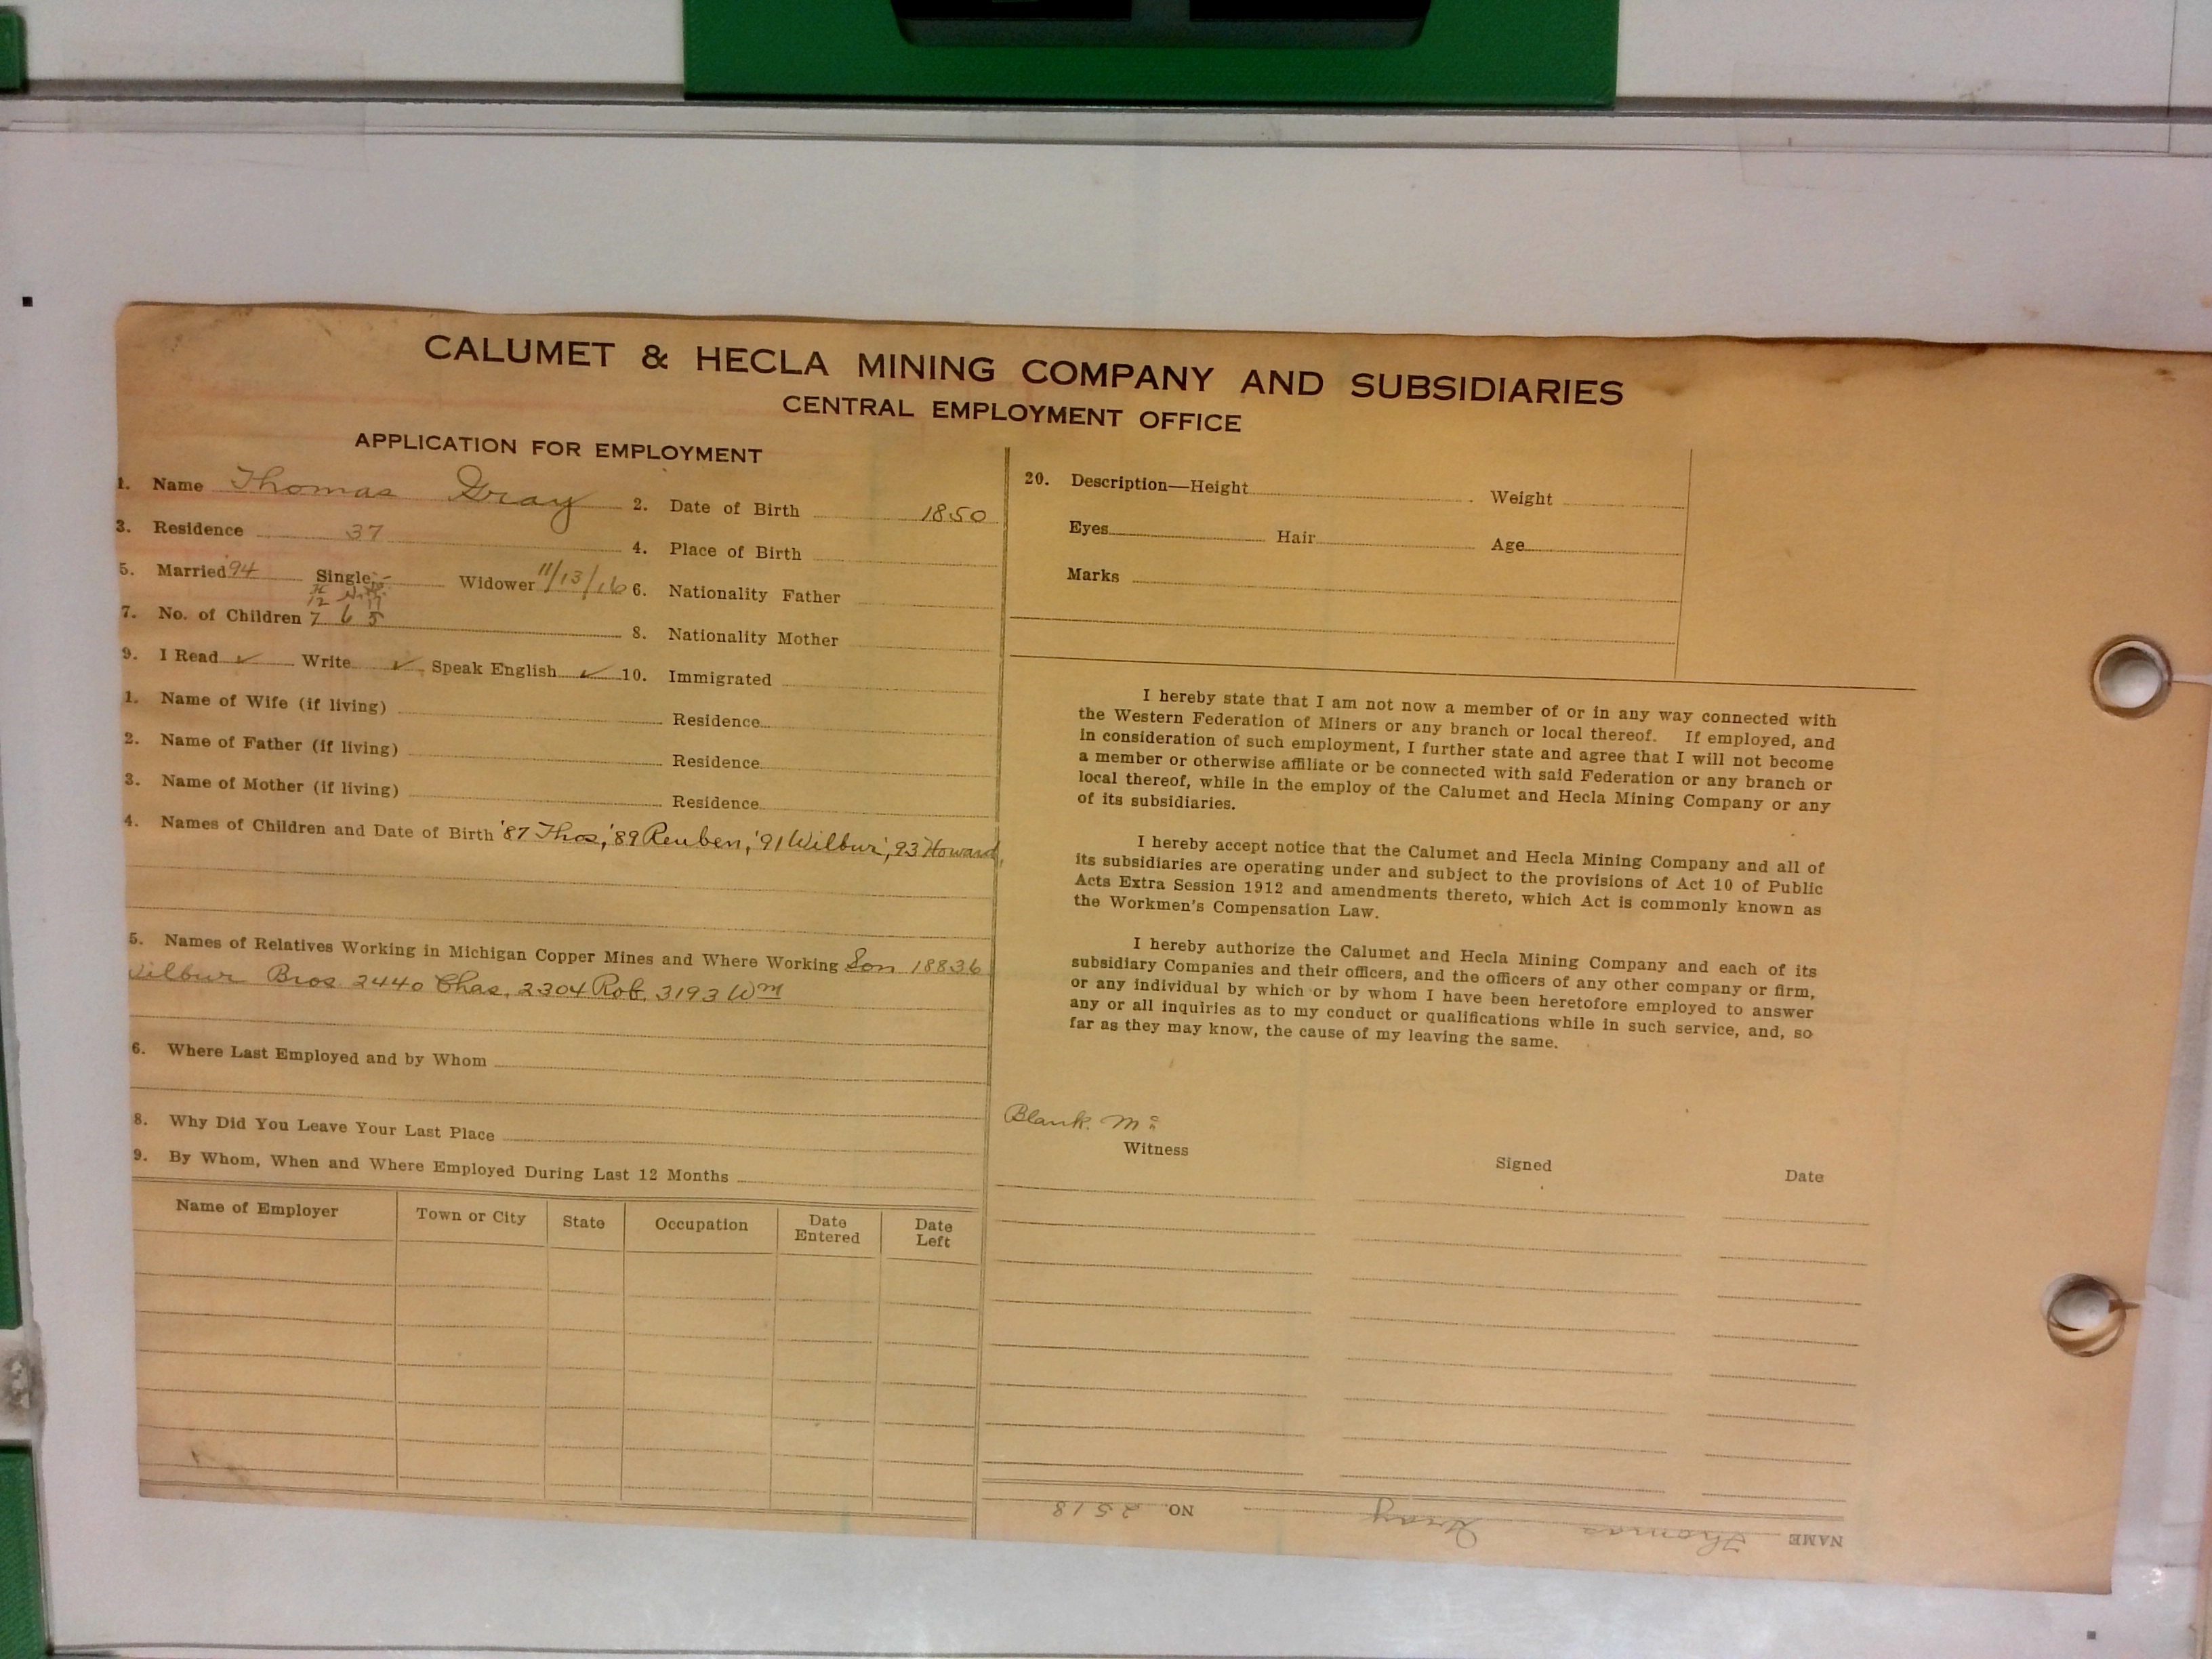 CALUMET & HECLA MINING COMPANY AND SUBSIDIARIES
CENTRAL EMPLOYMENT OFFICE
APPLICATION FOR EMPLOYMENT
1. Name Thomas Gray 2. Date of Birth 1850
3. Residence 37 4. Place of Birth
5. Married 94 Single - Widower 11/13/16 6. Nationality Father
7. No. of Children 7 6 5 8. Nationality Mother
9. I Read ✓ Write ✓ Speak English ✓ 10. Immigrated
1. Name of Wife (if living) Residence
2. Name of Father (if living) Residence
3. Name of Mother (if living) Residence
4. Names of Children and Date of Birth '87 Thos, '89 Reuben, '91 Wilbur, '93 Howard,
5. Names of Relatives Working in Michigan Copper Mines and Where Working Son 18836
Wilbur Bros. 2440 Chas, 2304 Rob. 3193 Wm
6. Where Last Employed and by Whom
8. Why Did You Leave Your Last Place
9. By Whom, When and Where Employed During Last 12 Months
Name of Employer Town or City State Occupation Date Entered Date Left
20. Description—Height Weight
Eyes Hair Age
Marks
I hereby state that I am not now a member of or in any way connected with
the Western Federation of Miners or any branch or local thereof. If employed, and
in consideration of such employment, I further state and agree that I will not become
a member or otherwise affiliate or be connected with said Federation or any branch or
local thereof, while in the employ of the Calumet and Hecla Mining Company or any
of its subsidiaries.
I hereby accept notice that the Calumet and Hecla Mining Company and all of
its subsidiaries are operating under and subject to the provisions of Act 10 of Public
Acts Extra Session 1912 and amendments thereto, which Act is commonly known as
the Workmen's Compensation Law.
I hereby authorize the Calumet and Hecla Mining Company and each of its
subsidiary Companies and their officers, and the officers of any other company or firm,
or any individual by which or by whom I have been heretofore employed to answer
any or all inquiries as to my conduct or qualifications while in such service, and, so
far as they may know, the cause of my leaving the same.
Blank.
Witness Signed Date
NAME Thomas Gray NO. 2518